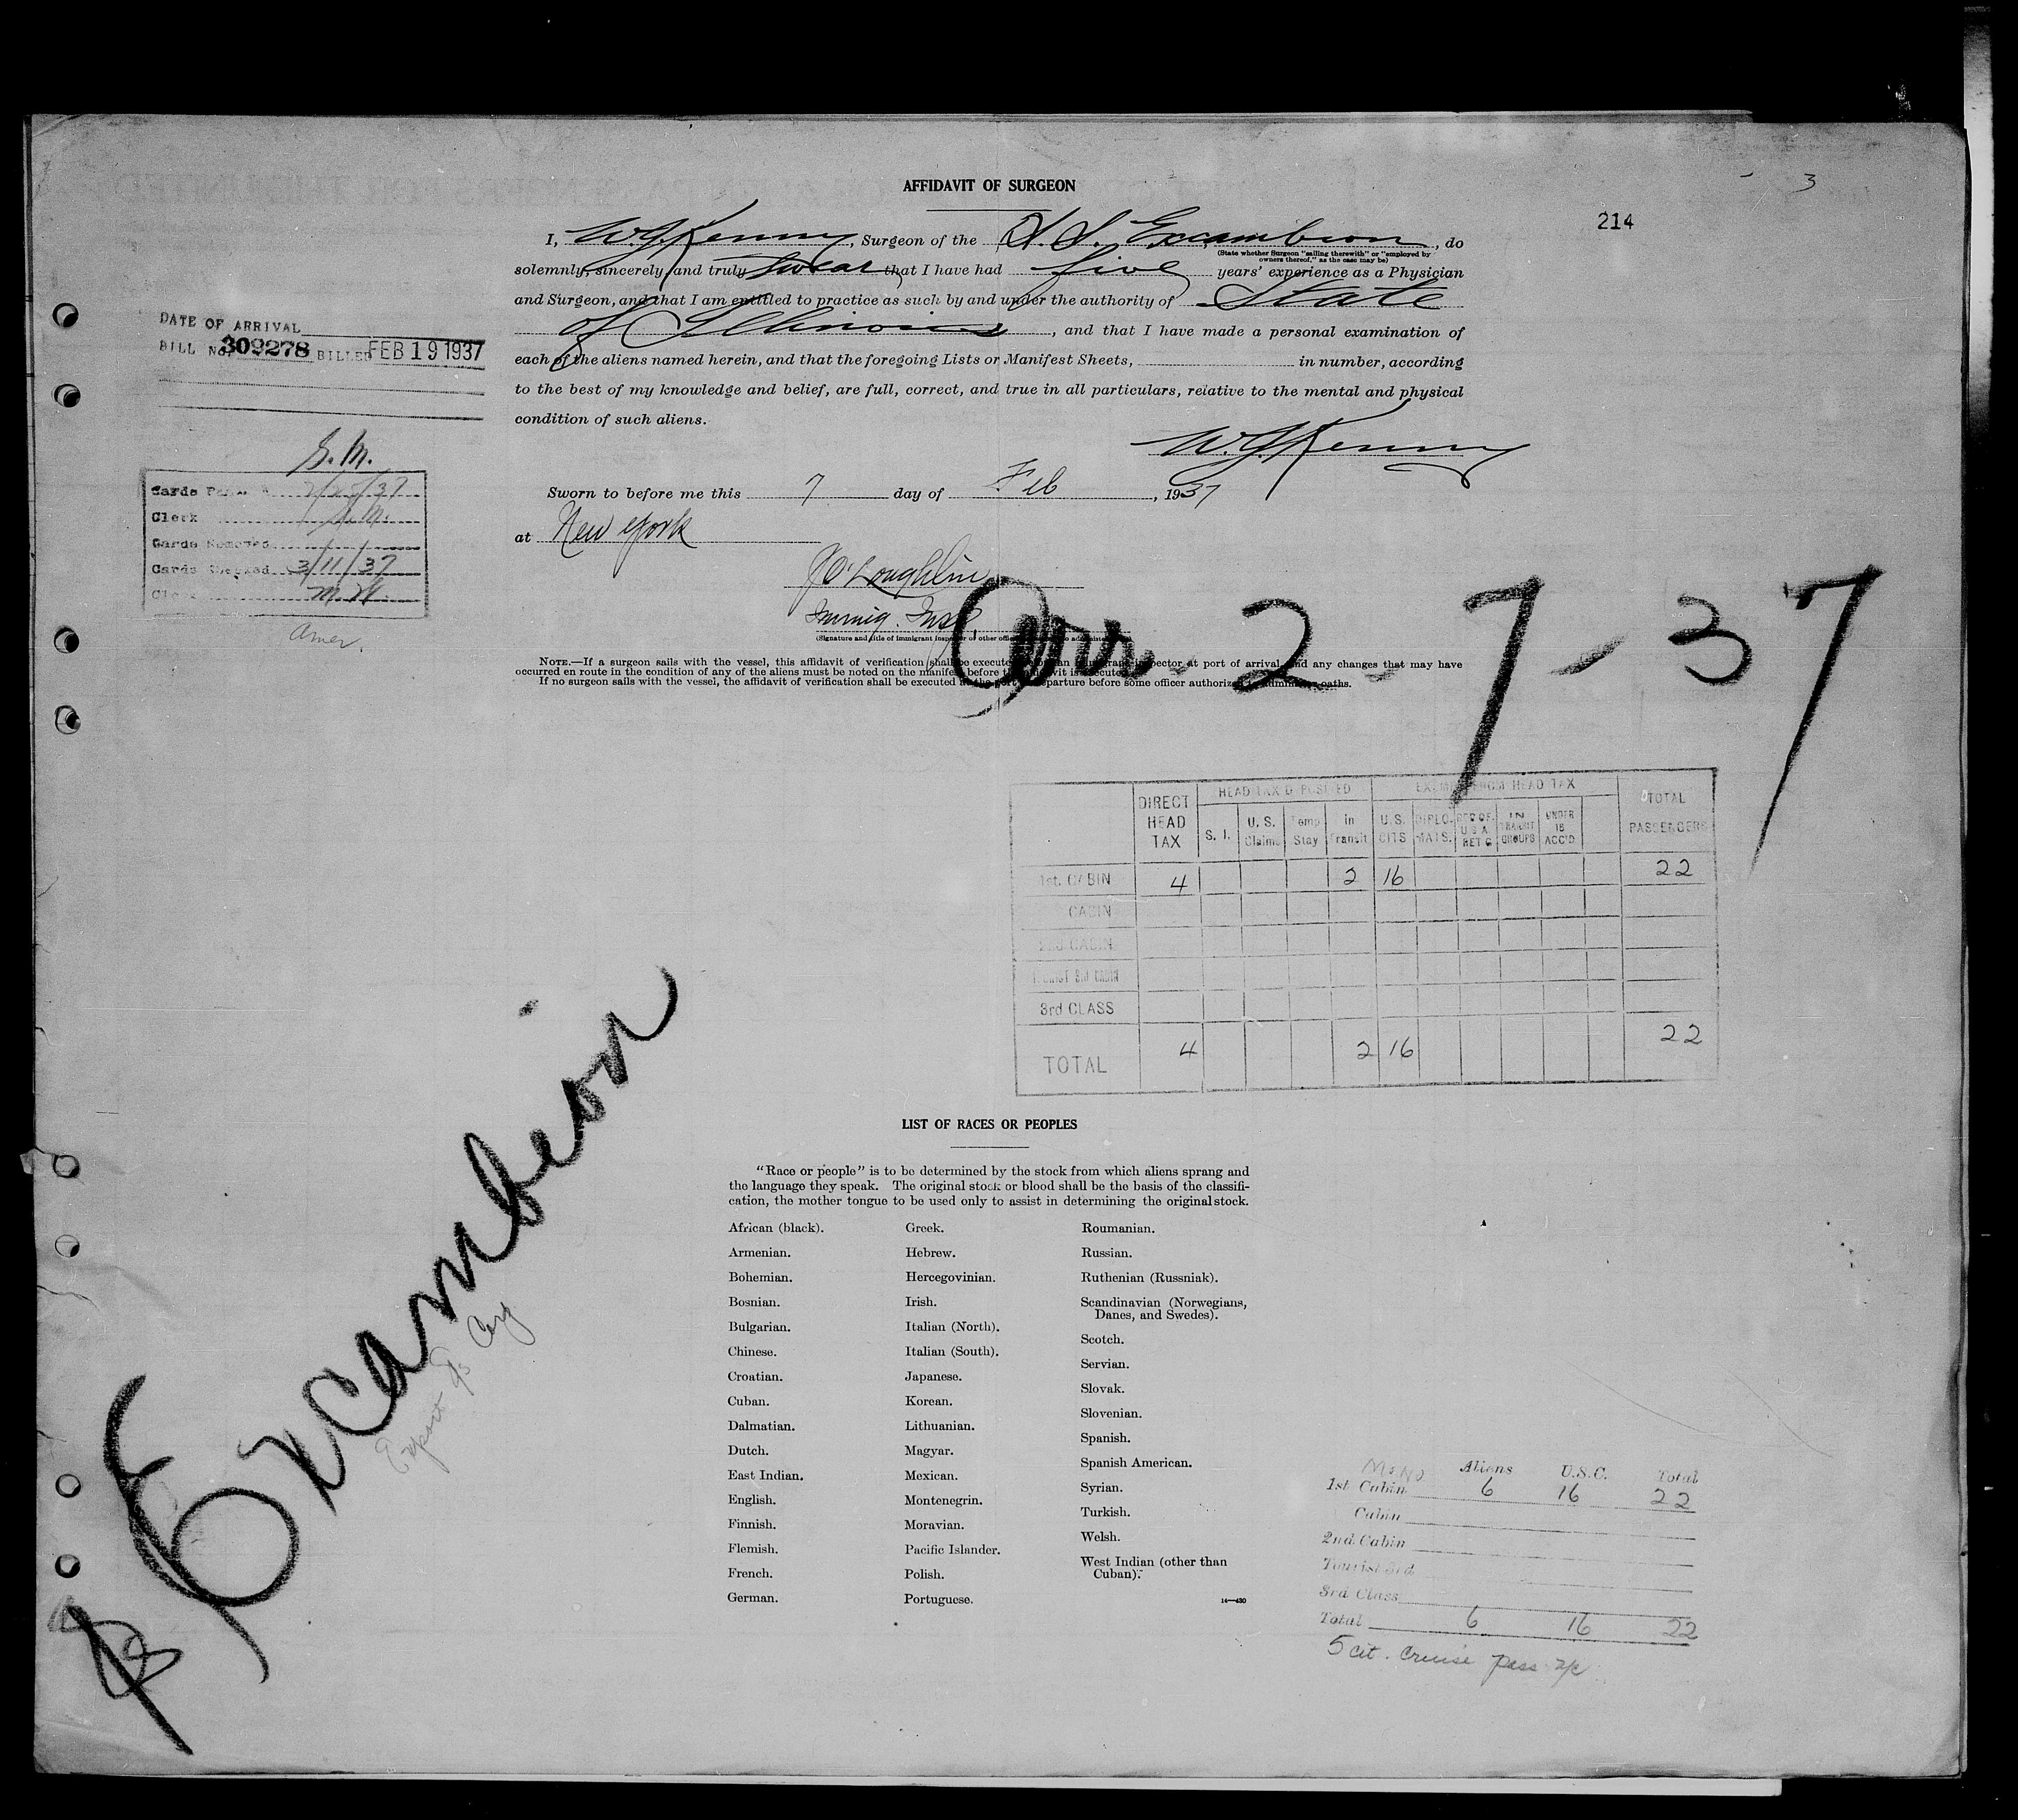 3
214
AFFIDAVIT OF SURGEON
I, W.G. Kenny, Surgeon of the S.S. Excambion, do
(State whether Surgeon "sailing therewith" or "employed by
owners thereof," as the case may be)
solemnly, sincerely, and truly swear that I have had five years' experience as a Physician
and Surgeon, and that I am entitled to practice as such by and under the authority of State
of Illinois, and that I have made a personal examination of
each of the aliens named herein, and that the foregoing Lists or Manifest Sheets, in number, according
to the best of my knowledge and belief, are full, correct, and true in all particulars, relative to the mental and physical
condition of such aliens.
W.G. Kenny
Sworn to before me this 7 day of Feb, 1937
at New York
J O'Loughlin
Immig. Insp.
(Signature and title of immigrant inspector or other
NOTE.—If a surgeon sails with the vessel, this affidavit of verification shall be executed inspector at port of arrival, and any changes that may have
occurred en route in the condition of any of the aliens must be noted on the manifest before
If no surgeon sails with the vessel, the affidavit of verification shall be executed at the port departure before some officer authorized to administer oaths.
Arr. 2-7-37
DATE OF ARRIVAL
BILL No. 309278 BILLED FEB 19 1937
S.M.
Cards
Clerk S.M.
Cards Removed
Cards Checked 3/11/37
Clerk M.H.
Amer.
DIRECT HEAD TAX
HEAD TAX DEPOSITED
S. I. U. S. Claims Temp Stay in Transit
EXEMPT FROM HEAD TAX
U.S. CITS DIPLO-MATS. RES OF U S A RET G IN TRANSIT GROUPS UNDER 16 ACC'D
TOTAL PASSENGERS
1st. CABIN 4 2 16 22
CABIN
2nd CABIN
TOURIST 3rd CABIN
3rd CLASS
TOTAL 4 2 16 22
Excambion
LIST OF RACES OR PEOPLES
"Race or people" is to be determined by the stock from which aliens sprang and
the language they speak. The original stock or blood shall be the basis of the classifi-
cation, the mother tongue to be used only to assist in determining the original stock.
African (black).
Armenian.
Bohemian.
Bosnian.
Bulgarian.
Chinese.
Croatian.
Cuban.
Dalmatian.
Dutch.
East Indian.
English.
Finnish.
Flemish.
French.
German.
Greek.
Hebrew.
Hercegovinian.
Irish.
Italian (North).
Italian (South).
Japanese.
Korean.
Lithuanian.
Magyar.
Mexican.
Montenegrin.
Moravian.
Pacific Islander.
Polish.
Portuguese.
Roumanian.
Russian.
Ruthenian (Russniak).
Scandinavian (Norwegians,
Danes, and Swedes).
Scotch.
Servian.
Slovak.
Slovenian.
Spanish.
Spanish American.
Syrian.
Turkish.
Welsh.
West Indian (other than
Cuban).
14—430
Aliens U.S.C. Total
1st Cabin 6 16 22
Cabin
2nd Cabin
Tourist 3rd
3rd Class
Total 6 16 22
5 cit. cruise pass